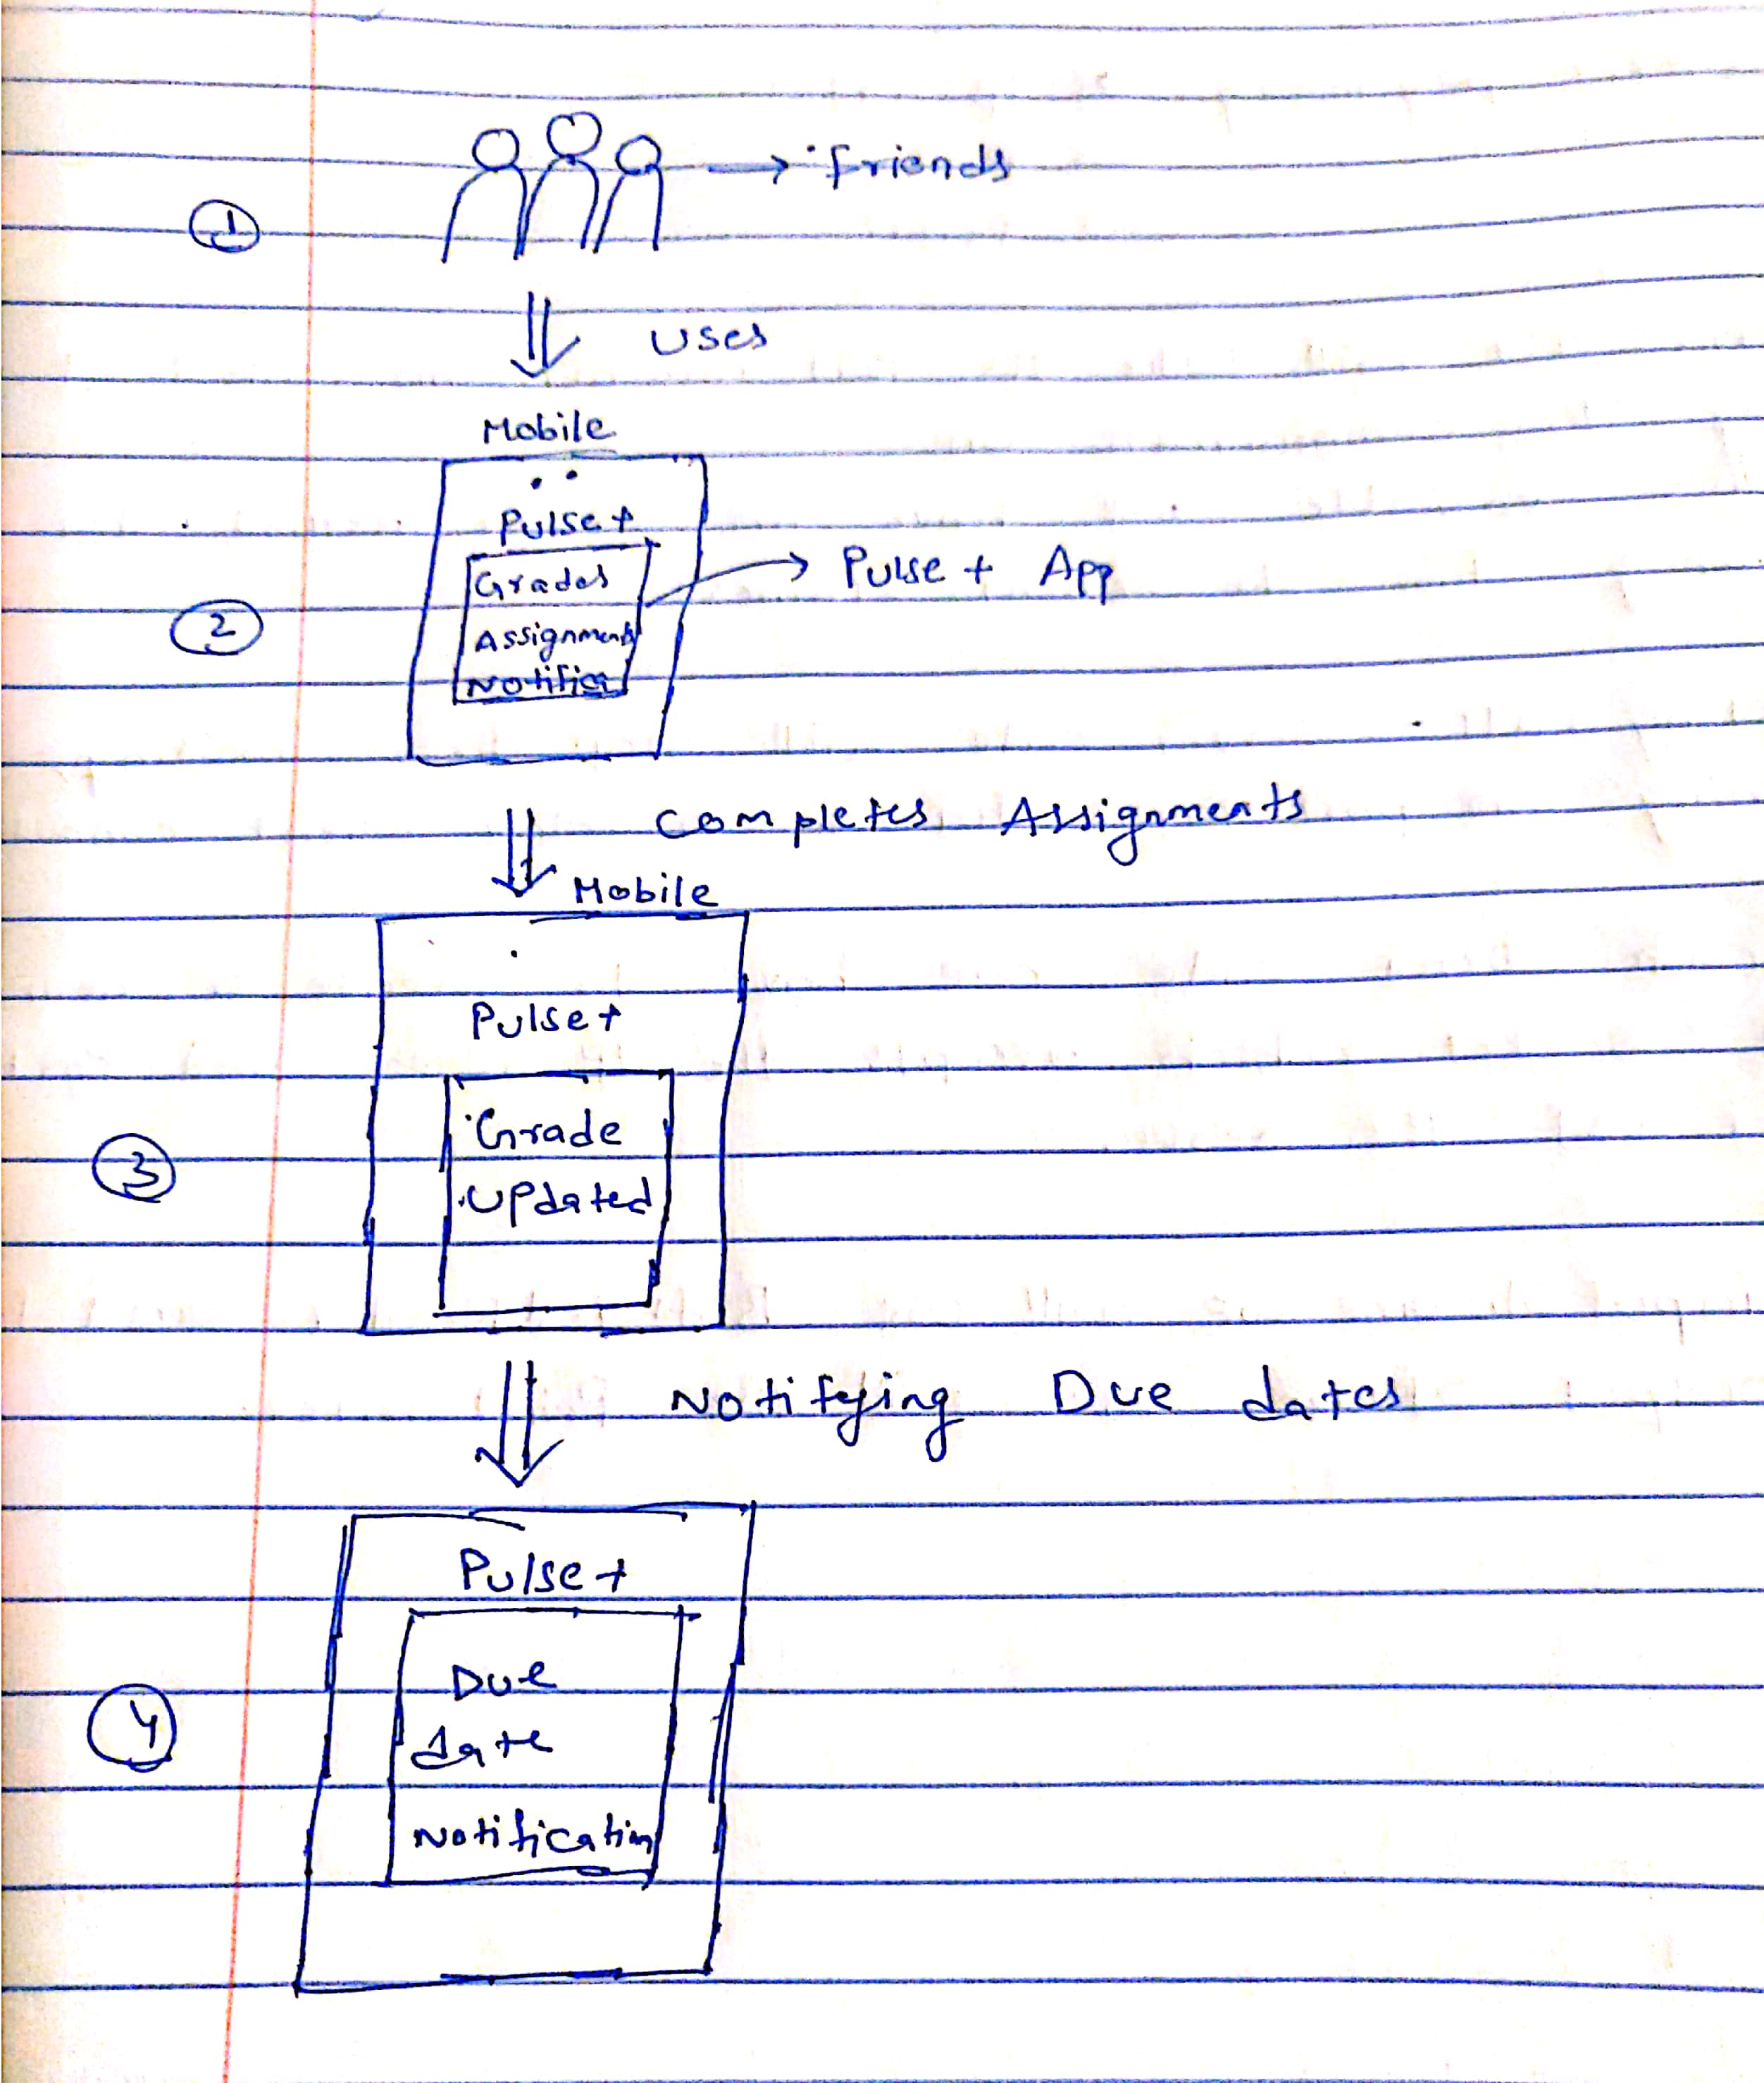 → friends
1
uses
Mobile
Pulse+
Grades
Assignments
Notifica
→ Pulse + App
2
completes Assignments
Mobile
Pulse+
Grade
updated
3
Notifying Due dates
Pulse+
Due
date
Notification
4